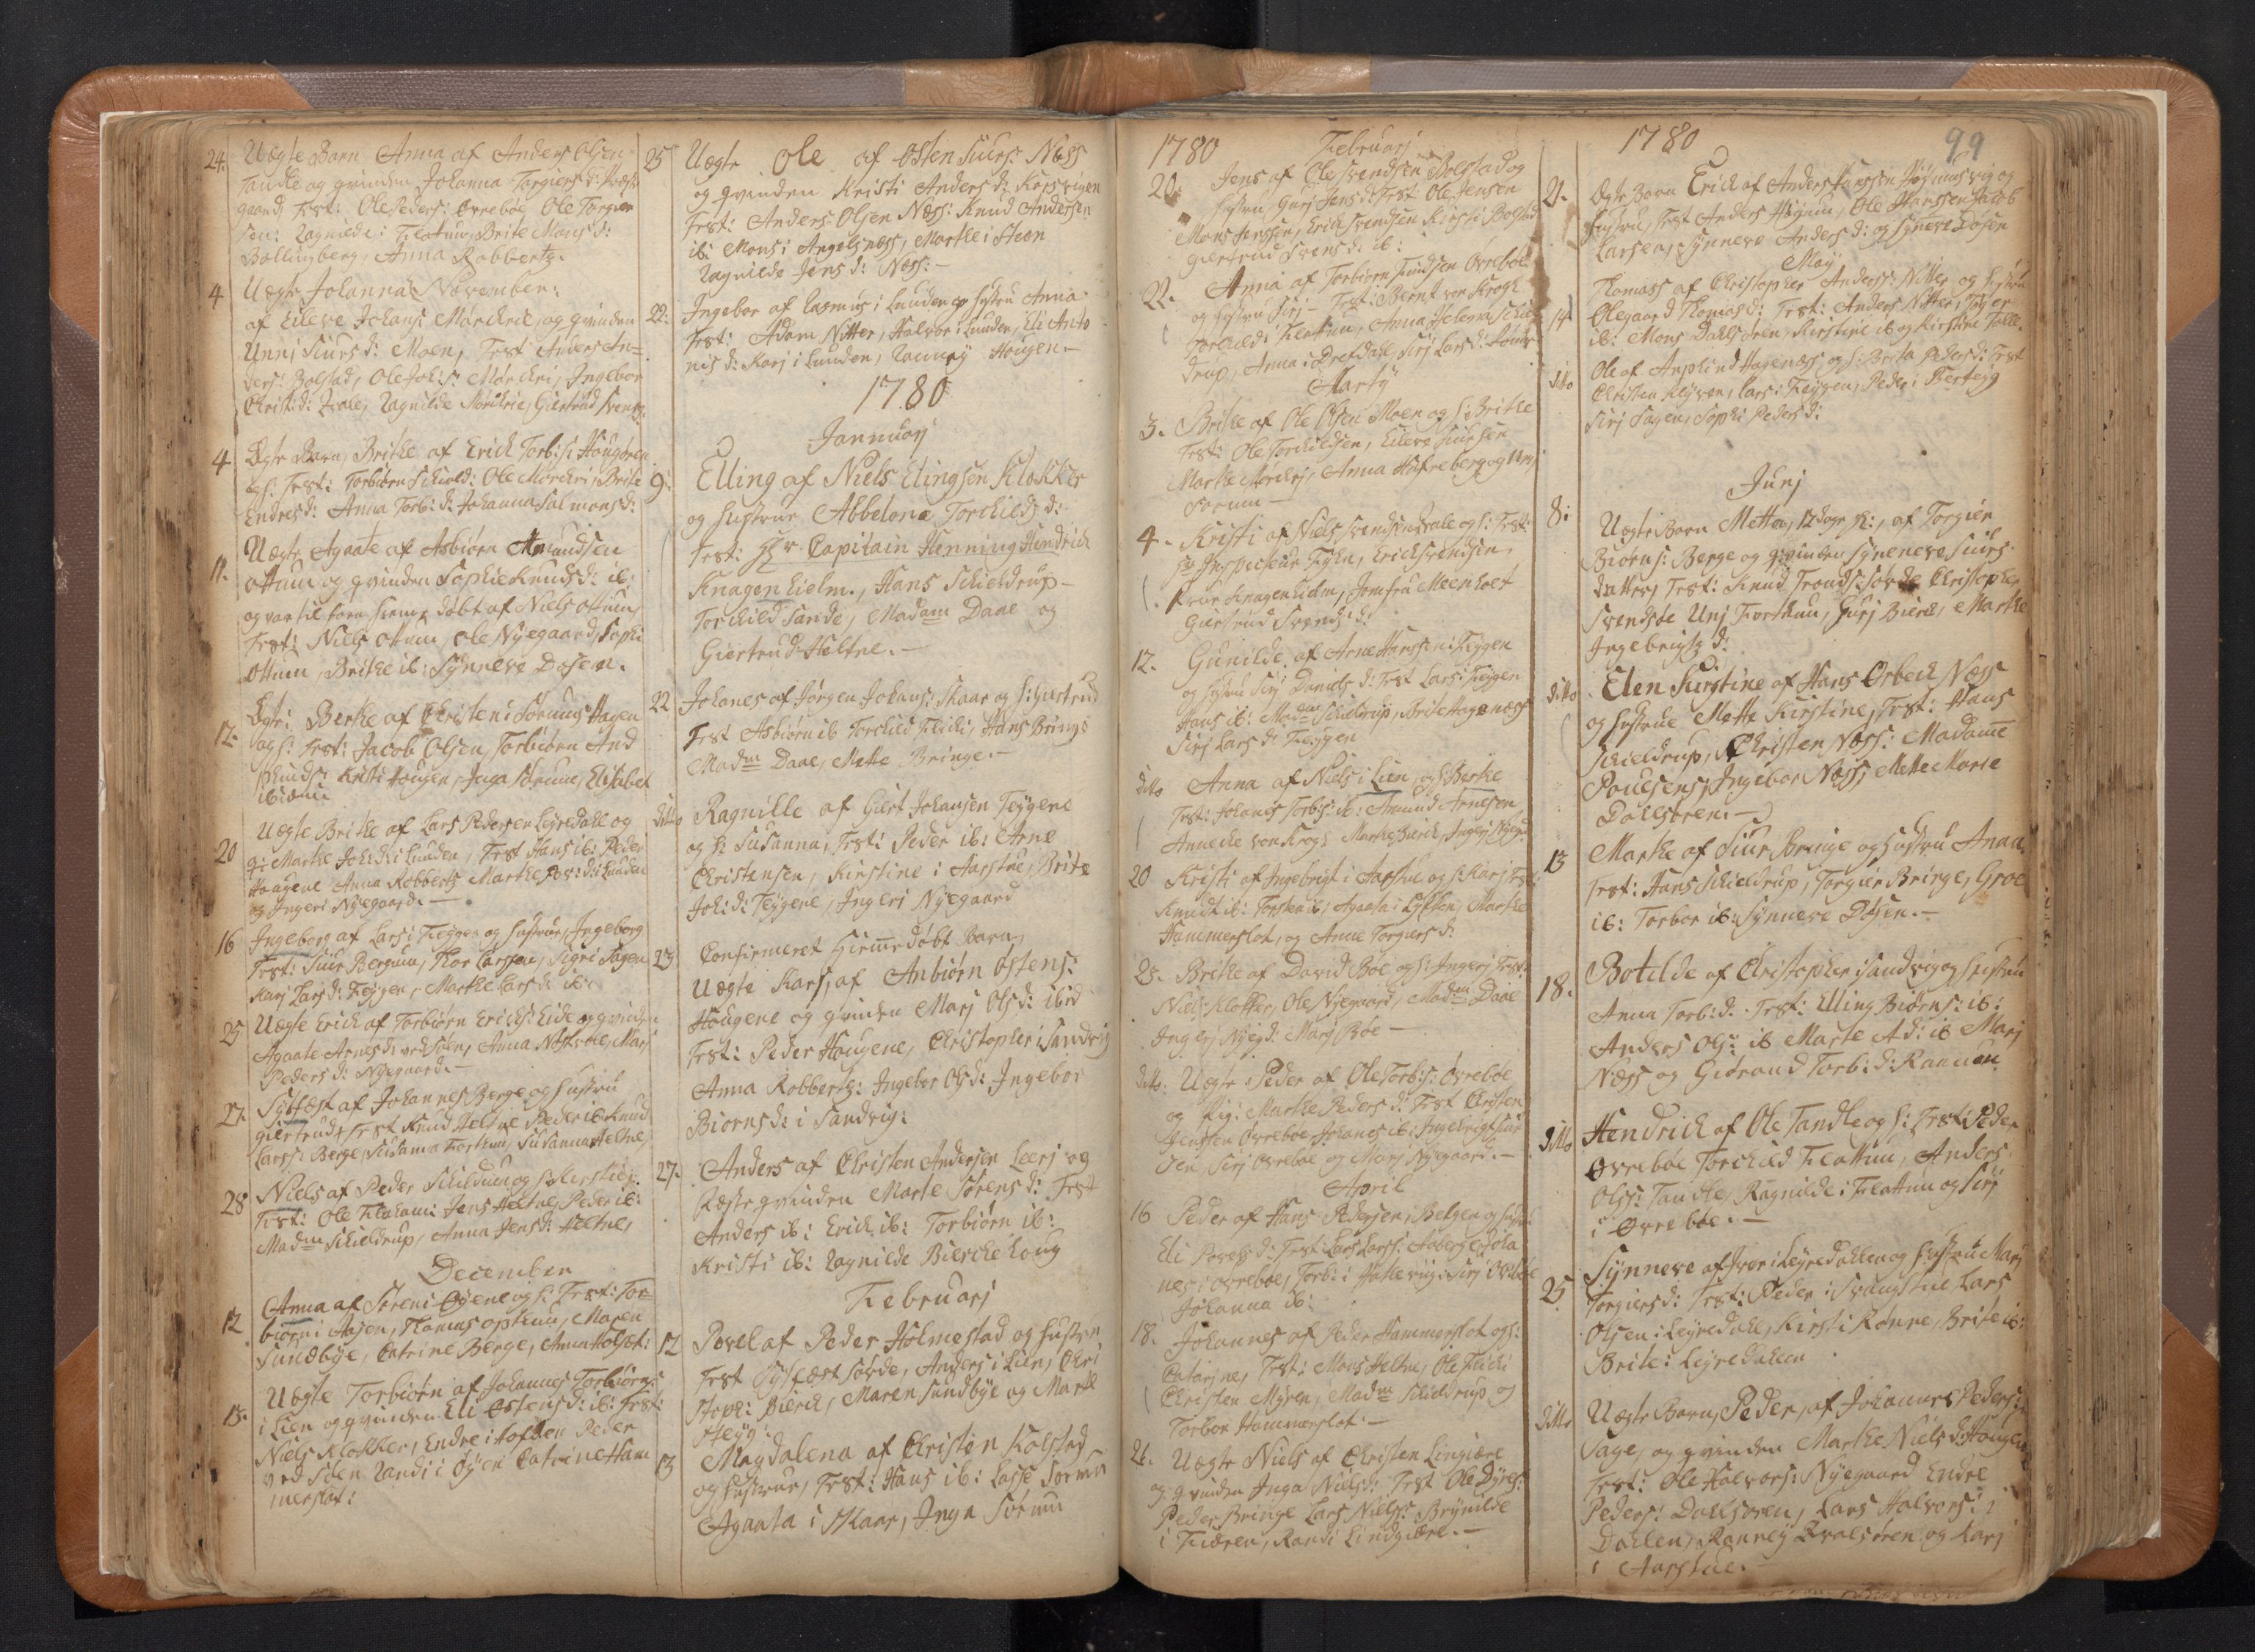 24. Uegte Barn Anna af Anders Olsen
Tandle og qvinden Johanna Torgiers d:
gaard, Test: Ole Peders: Øvreboe Ole Torgier
sen: Ragnilde i Flattum, Brite Mons d:
Bollingberg, Anna Robbertz.
4 Uegte Johanna November:
af Eileve Johans: Mørchrie, og qvinden
Unni Siurs d: Moen, Test Anders An=
ders: Bolstad, Ole Joh:s: Mørchri, Ingebor
Christ:d: Qvale, Ragnilde Mørchrie, Giertrud Svends:
4 Egte Barn, Brithe af Erick Torb:s: Hougøren
og h: Test: Torbiørn Schiold: Ole Mørchri, Brite
Endres d: Anna Torb: d: Johanna Salmons d:
11. Uegte Agaate af Asbiørn Amundsen
Ottum og qvinden Sophie Knuds d: ib:
og var til forn hieme døbt af Niels Ottum,
Test: Niels Ottum, Ole Nyegaard, Sophi
Ottum, Brithe ib: Synneve Døsen.
12. Egte: Berthe af Christen i Sørums Hagen
og h: Test: Jacob Olsen, Torbiørn And
Kristi Hougen, Inga Sørum, Elisabet
ibidem
20 Uegte Brithe af Lars Pedersen Leyredahl og
q: Marthe Joh:d: i Lunden, Test Hans ib: Peder
Haugene Anna Robbertz Marthe Pov: d: i Lunden
og Ingeri Nyegaard.—
16 Ingeborg af Lars i Feyges og hustrue, Ingeborg
Test: Siur Bergum, Thor Larssen, Sigri Sagen
Karj Lars d: Feygen, Marthe Lars d: ib:
25 Uegte Erick af Torbiørn Ericks: Eide og qvinden
Agaate Arnes d: ved Søen, Anna, Marj
Peders d: Nyegaard.—
27. Sylfæst af Johannes Berge og hustru
giertrud, Test Knud Heltne Peder ib: Knud
Larss: Berge Susanna Fortun, Susanna Heltne,
28 Niels af Peder Schilduen og h: Kirstie:
Test: Ole Flaham: Jens Heltne, Peder ib:
Madm Schieldrup, Anna Jens d: Heltne,
December
12 Anna af Søren i Øyene og h: Test: Tor=
biørn i Aasen, Thomas optun, Maren
Sundbye, Catrine Berge, Anna Holst:
13. Uegte Torbiørn af Johannes Torbiørns:
i Lien og qvinden Eli Østens d: ib: Test:
Niels Klokker, Endre i Hoflien Peder
ved Søen Randi i Øyen Catrine Ham
merslot:
25 Uegte Ole af Østen Siurs: Næss
og qvinden Kristi Anders d: Kersvigen
Test: Anders Olsen Næss: Knud Andersen
ib: Mons i Angelsnæss, Marthe i Steen
Ragnilde Jens d: Næss:—
22: Ingebor af Rasmus i Lunden og hustru Anna
Test: Adam Nitter, Halvor i Lunden, Eli Anto
nis d: Karj i Lunden, Rannøy Hougen.—
1780
Jannuarj
9: Elling af Niels Elingsen Klokker
og hustrue Abbelone Torchilds d:
Test: Hr Capitain Henning Hindrich
Knagenhielm., Hans Schieldrup—
Torchild Sande, Madam Daae og
Giertrud Heltne.—
22 Johanes af Jørgen Johans: Skaar og h: giertrud
Test Asbiørn ib Torchild Flichi, Hans Bringe
Madm Daae, Mette Bringe.—
ditto Ragnille af Giert Johansen Feygene
og h: Susanna, Test: Peder ib: Arne
Christensen, Kirstine i Aarstue, Brite
Joh:d: Feygene, Ingeri Nyegaard
23 Confirmeret hieme døbt Barn,
Uegte Karj, af Anbiørn Østens:
Hougene og qvinden Marj Ols d: ibid
Test: Peder Hougene, Christopher i Sandvig
Anna Robbertz: Ingebor Ols d: Ingebor
Biørns d: i Sandvig:
27. Anders af Christen Andersen Leerj og
Fæste qvinden Marte Sørens d: Test
Anders ib: Erick ib: Torbiørn ib:
Kristi ib: Ragnilde Bierche houg
Februarj
12 Povel af Peder Holmestad og hustru
Test Sylfæst Sovde, Anders i Lien, Chri
stoph: Bierch, Maren Sundbye og Marte
Steyg:
13 Magdalena af Christen Kolstad
og hustrue, Test: Hans ib: Lasse Sørum
Agaata i Skaar, Inga Sørum
1780 Februarj
20. Jens af Ole Svendsen Bolstad og
hustru Gurj Jens d: Test Ole Jensen
Mons Jensen, Erick Svendsen Kirsti Bolstad
giertrud Svens d: ib:
22. Anna af Torbiørn Knudsen Øvrebøe
og hustru Sirj— Test: Bernt von Krogh
Torchild i Flattun, Anna Helena Schiel
drup, Anna i Drefdahl, Sirj Lars d:
Martj
3. Brithe af Ole Olsen Moen og h: Brithe
Test: Ole Torchildsen, Eileve Siursen
Marthe Mørchrj, Anna Hafreberg og Unj
Sørum—
4. Kristi af Niels Svendsen Qvale og h: Test:
Hr Inspecteur Fyhn, Erick Svendsen
Frue Knagenhielm, Jomfru Meenholt
Giertrud Svends d:
12. Gunilde af Arne Hanssen i Feygen
og hustru Sirj Daniels d: Test Lars i Feygen
Hans ib: Madm Schieldrup, Brite Hagenæss
Sirj Lars d: Feygen
ditto Anna af Niels i Lien, og h: Berthe
Test: Johanes Torb:s: ib: Amund Arnesen
Annecke von Krog: Marthe Bierck, Ingerj Nyegd
20 Kristi af Ingebrigt i Aarstue og h: Karj Test:
Knudt ib: Torsten ib, Agaata i Løften, Marthe
Hammerslot, og Anne Torgiers d:
25. Brithe af David Bøe og h: Ingerj Test:
Niels Klokker, Ole Nyegaard, Madm Daae
Ingerj Nyeg d: Marj Bøe—
ditto: Uegte: Peder af Ole Torb:s: Øvrebøe
og Pig: Marthe Peders d: Test Christen
Jenssen Øvreboe Johanes ib: Ingebrigt Siur
sen, Sirj Øvrebøe og Marj Nyegaard.—
April
16 Peder af Hans Pedersen i Bolgen og hustru
Eli Povels d: Test Lars Larss: Aaberge, Joha
nes i Øvreboe, Torb: i Hatlevig: Sirj Øvreboe
Johanna ib:
18. Johannes af Peder Hammerslot og h:
Catarine, Test: Mons Heltne, Ole Flichi
Christen Myren, Madm Schieldrup og
Torbor Hammerslot.—
21. Uegte Niels af Christen Lingiære
og qvinden Inga Niels d: Test Ole Dyres:
Peder Bringe Lars Niels: Brynilde
i Fiæren, Randi Lindgiære.—
1780 99
21. Egte Barn Erick af Anders Hanssen Høyumsvig og
hustru, Test Anders Høyum, Ole Hanssen, Jacob
Larsen, Synneve Anders d: og Syneve Døsen
May
14 Thomass af Christopher Anderss: Nitter og hustru
Olegaard Thomas d: Test: Anders Nitter, Tolger
ib: Mons Dahlsøren, Kirstine ib og Kirstine Tolle.
ditto Ole af Anphind Hagenæss og h: Brita Peders d: Test
Christen Klyven, Lars i Feygen, Peder i Berteig
Sirj Sagen, Sophi Peders d:
Junj
8: Uegte Barn Metta, 12 dage g:, af Torgier
Biørns: Berge og qvinden Synneve Siurs
datter, Test: Knud Tronds: Sovde Christopher
Svendsøe Unj Forthun, Gurj Bierck, Marthe
Ingebrigtz d:
ditto Elen Kirstine af Hans Orbech Næss
og hustrue Mette Kirstine, Test: Hans
Schieldrup, Christen Næss: Madame
Poulsens, Ingebor Næss, Mette Marie
Dahlsøren.—
13 Marthe af Siur Bringe og hustru Anna,
Test: Hans Schieldrup, Torgier Bringe, Groe
ib: Torbor ib: Synneve Døsen.—
18. Botilde af Christopher i Sandvig og hustru
Anna Torb: d: Test: Elling Biørns: ib:
Anders Ols: ib Marte A d: ib Marj
Næss og Gidrand Torb: d: Rannum
ditto Hendrich af Ole Tandle og h: Test: Peder
Øvrebøe Torchild Flattun, Anders
Ols: Tandle, Ragnilde i Flattun og Sirj
i Øvreboe.—
25 Synneve af Iver i Leyredahlen og hustru Marj
Torgiers d: Test: Peder i Svangstue Lars
Olsen i Leyredahl, Kirsti Rønne, Brite ib:
Brite: Leyredahlen
ditto Uegte Barn, Peder, af Johannes Peders:
Sage, og qvinden Marthe Niels d: Hougen
Test: Ole Halvors: Nyegaard Endre
Peders: Dahlsøren, Lars Halvors: i
Dahlen, Ranney Qvalsøren og Karj
i Aarstue.—